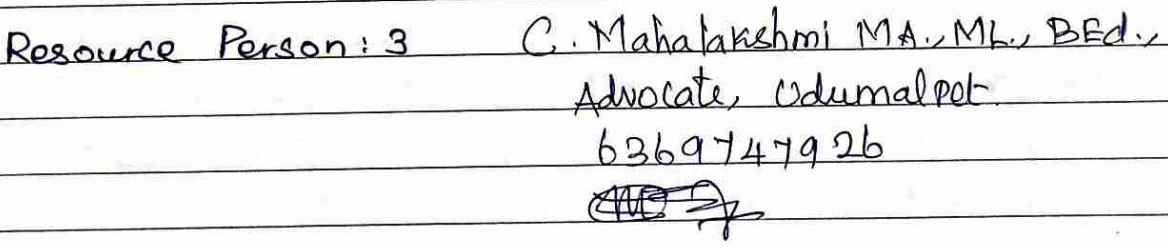 Resource Person: 3 C. Mahalakshmi MA., ML., BEd.,
Advocate, Udumalpet.
6369747926